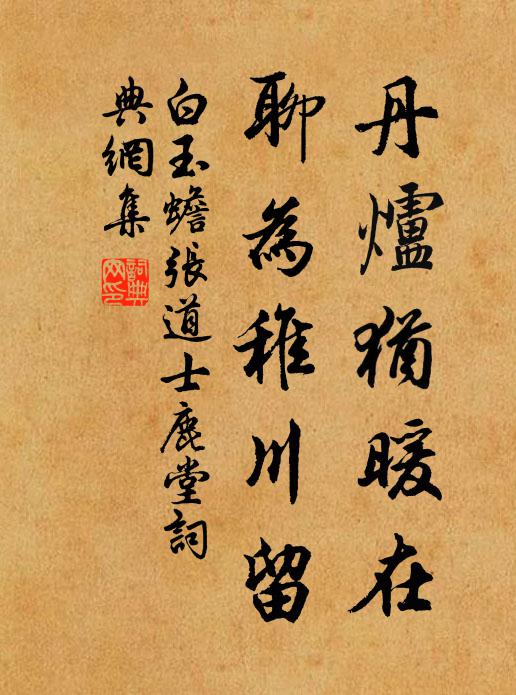 丹爐猶暖在
聊為稚川留
白玉蟾張道士鹿堂詞
典網集
詞典網印